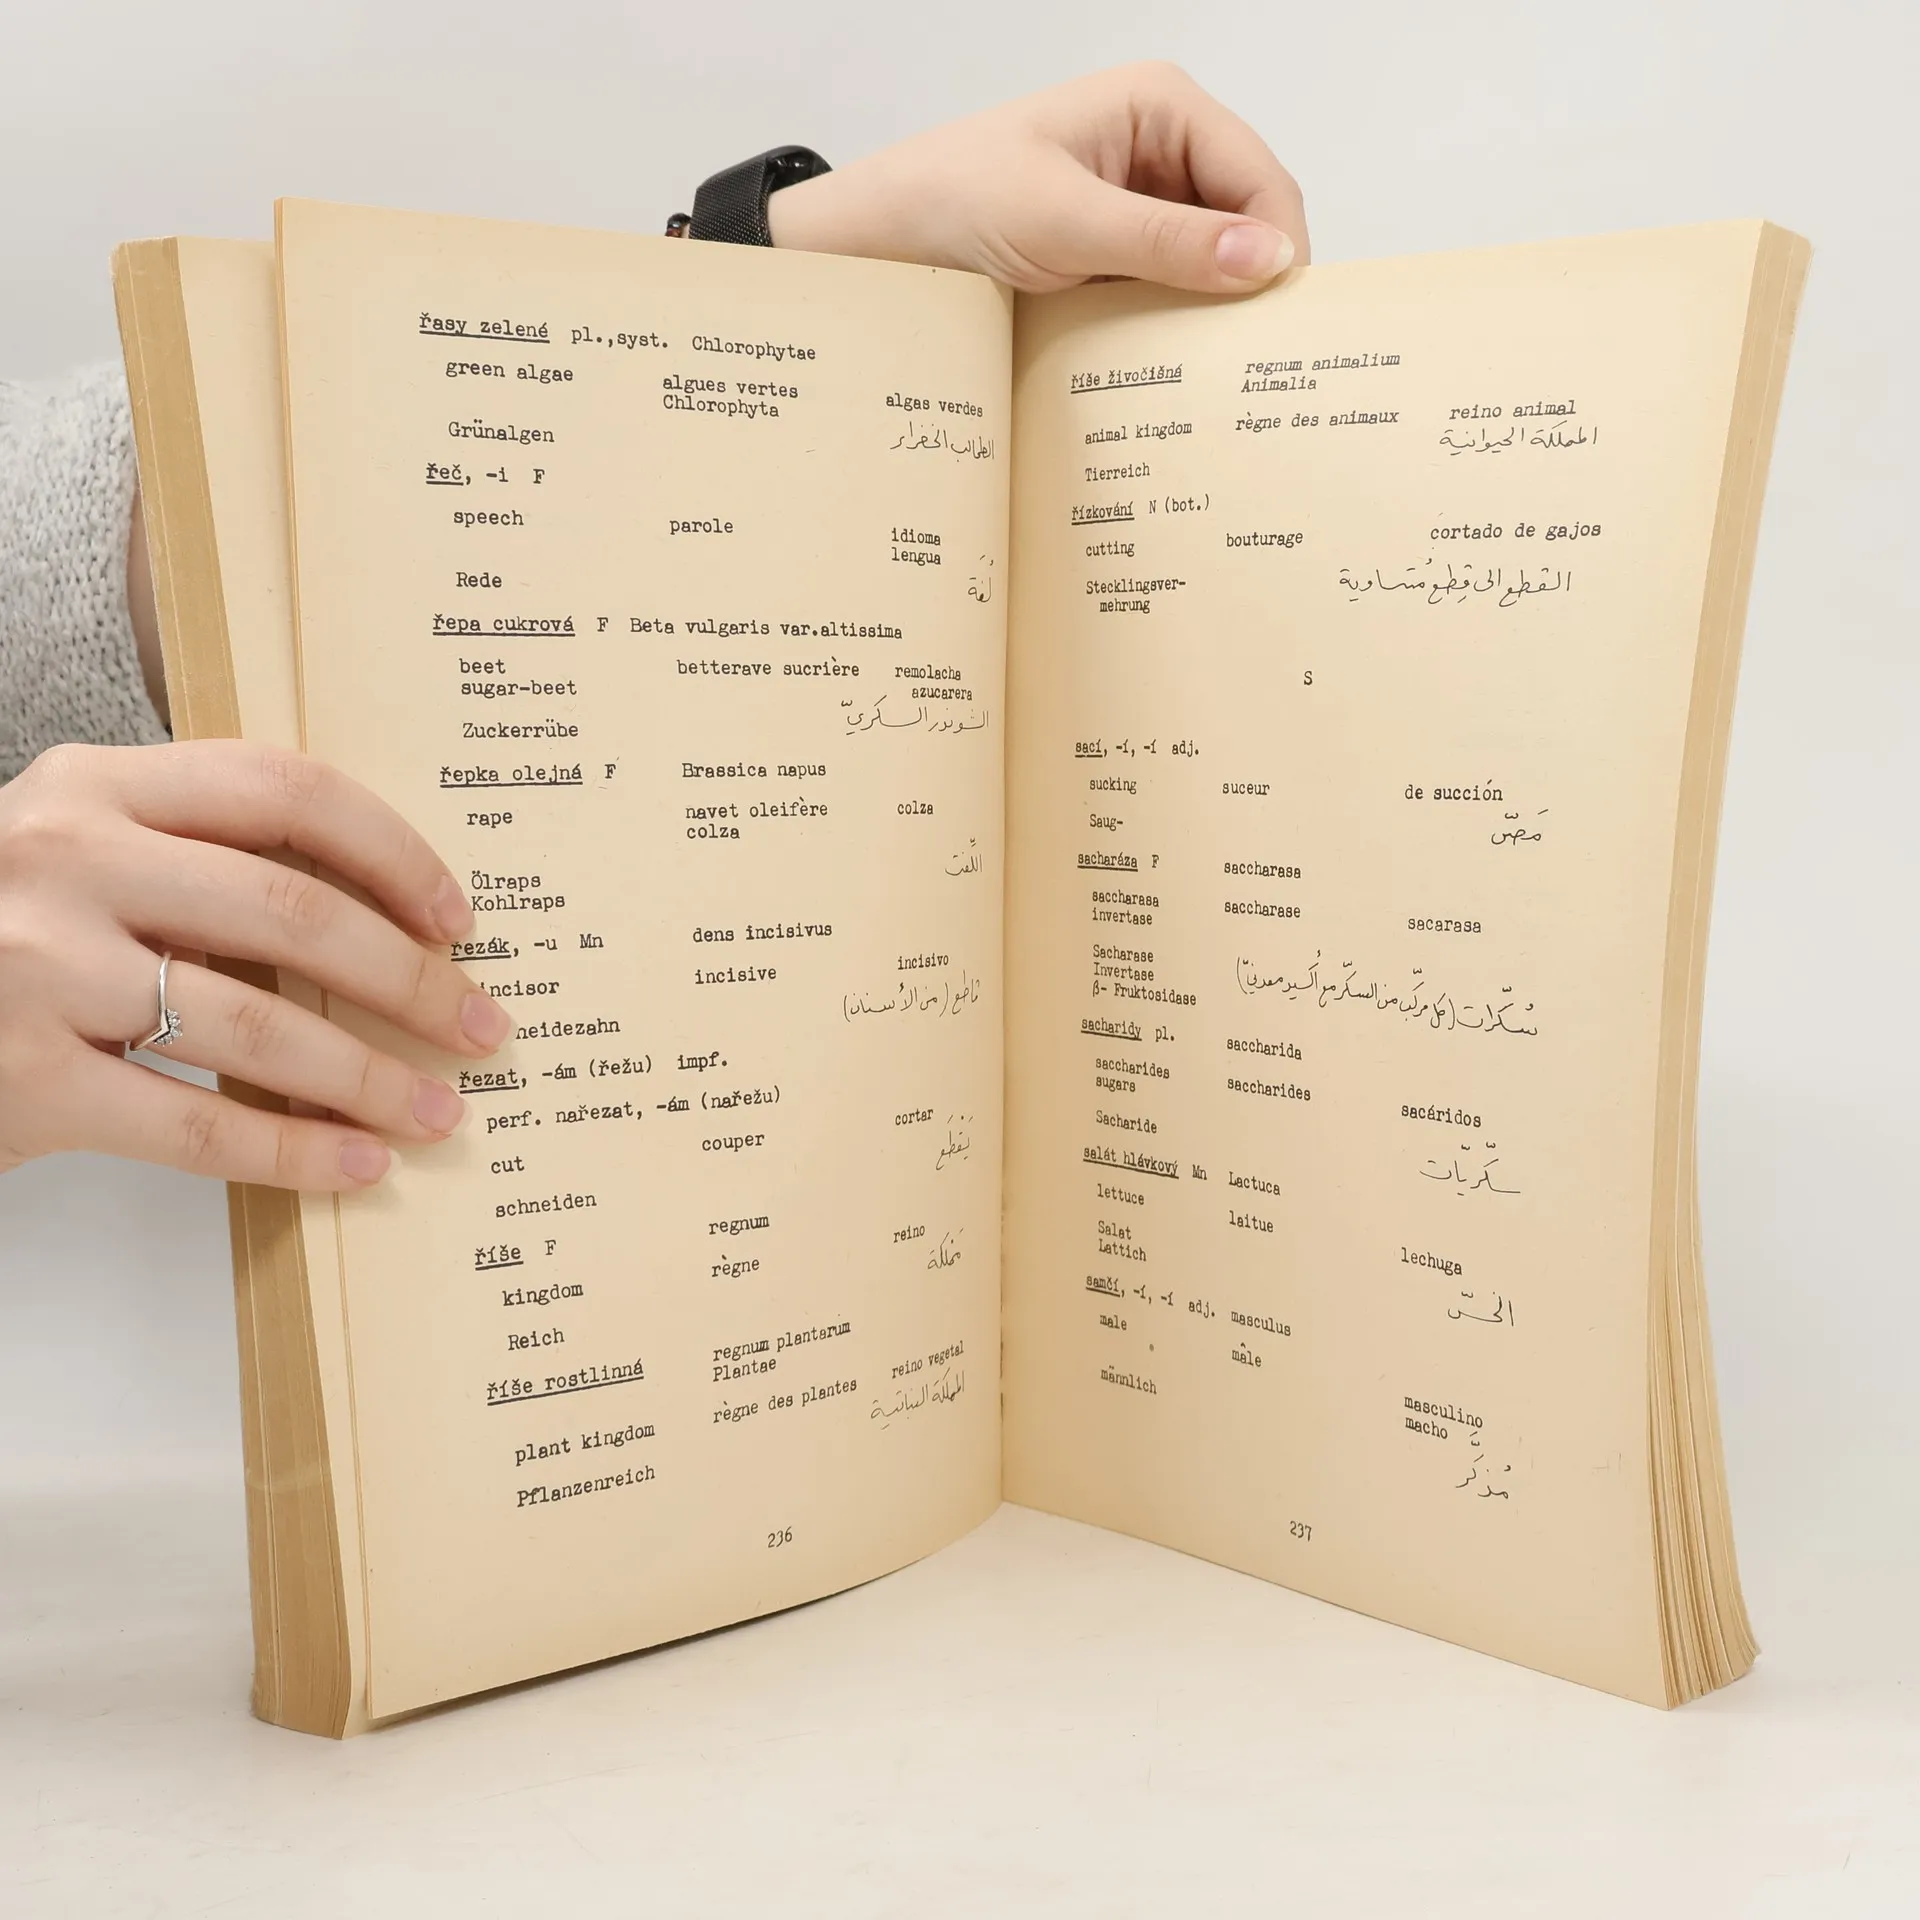 řasy zelené pl.,syst. Chlorophytae
green algae algues vertes algas verdes
Chlorophyta
Grünalgen الطحالب الخضراء
řeč, -i F
speech parole idioma
lengua
Rede لُغَة
řepa cukrová F Beta vulgaris var.altissima
beet betterave sucrière remolacha
sugar-beet azucarera
Zuckerrübe الشوندر السكريّ
řepka olejná F Brassica napus
rape navet oleifère colza
colza
اللّفت
Ölraps
Kohlraps
řezák, -u Mn dens incisivus
incisor incisive incisivo
neidezahn قاطع (من الأسنان)
řezat, -ám (řežu) impf.
perf. nařezat, -ám (nařežu)
cut couper cortar
schneiden يَقطَع
říše F regnum
kingdom règne reino
Reich مَملكة
říše rostlinná regnum plantarum
Plantae
plant kingdom règne des plantes reino vegetal
Pflanzenreich المملكة النباتية
236
říše živočišná regnum animalium
Animalia
animal kingdom règne des animaux reino animal
Tierreich المملكة الحيوانية
řízkování N (bot.)
cutting bouturage cortado de gajos
Stecklingsver- القطع الى قِطع مُتساوية
mehrung
S
sací, -í, -í adj.
sucking suceur de succión
Saug- مَصّ
sacharáza F saccharasa
saccharasa saccharase sacarasa
invertase
Sacharase
Invertase
β- Fruktosidase
سُكّرات (كل مركّب من السكّر مع أكسيد معدنيّ)
sacharidy pl. saccharida
saccharides saccharides sacáridos
sugars
Sacharide سكّريّات
salát hlávkový Mn Lactuca
lettuce laitue lechuga
Salat الخسّ
Lattich
samčí, -í, -í adj. masculus
male mâle masculino
macho
männlich مُذكَّر
237